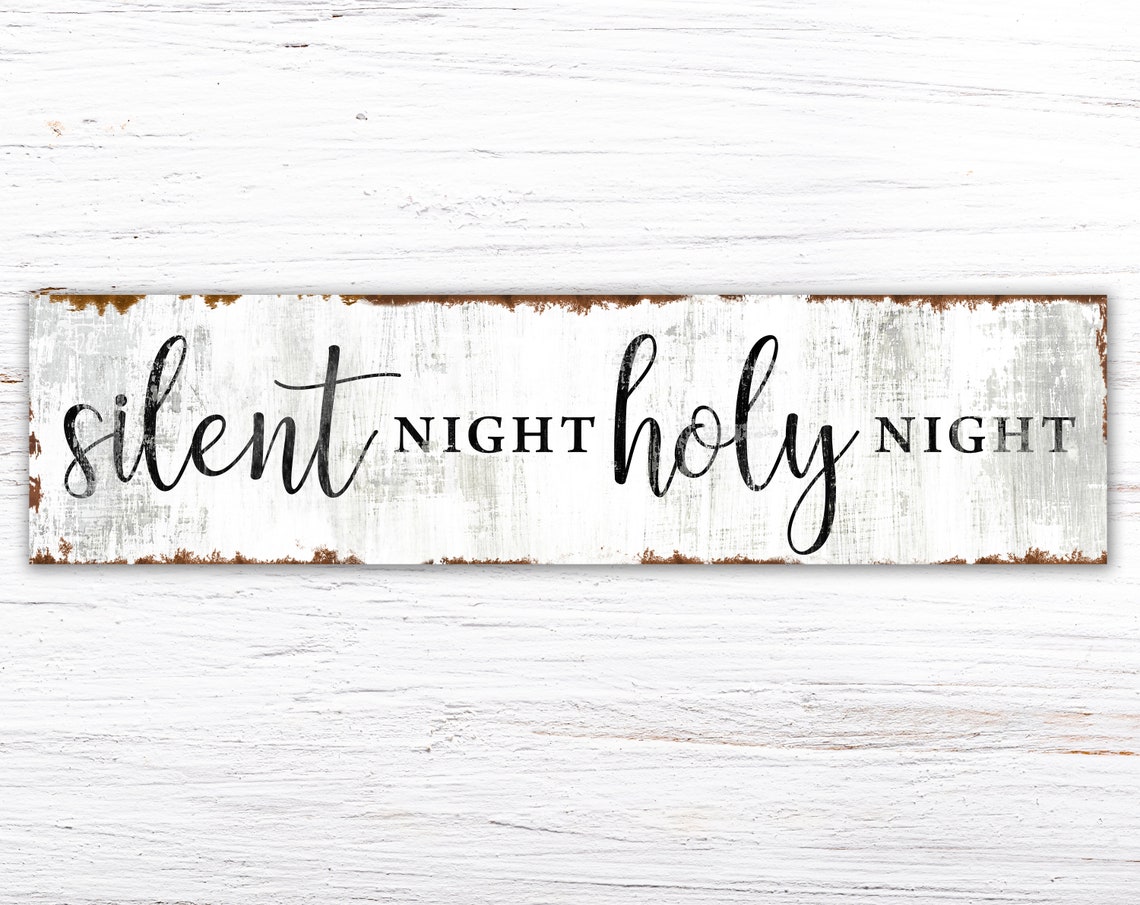 silent NIGHT holy NIGHT